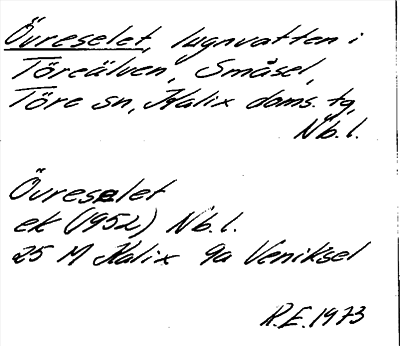 Övreselet, lugnvatten i
Töreälven, Småsel,
Töre sn, Kalix doms. tg,
Nb. l.
Övreselet
ek (1952) Nb. l.
25 M Kalix 9a Veniksel
R.E. 1973